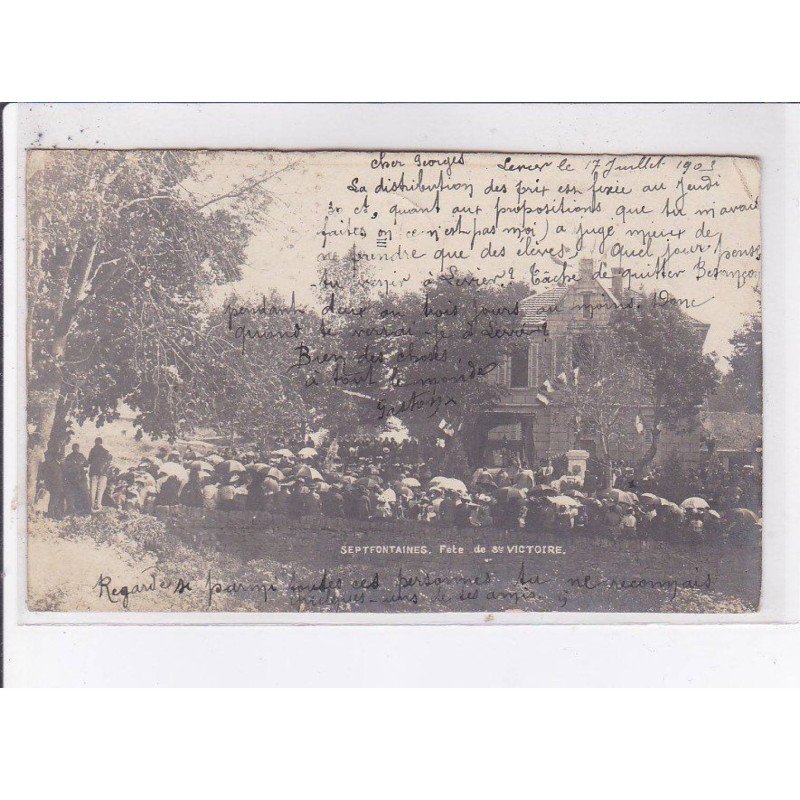 Cher Georges Levier le 17 Juillet 1903
La distribution des prix est fixée au Jeudi
30 ct, quant aux propositions que tu m'avais
faites on (ce n'est pas moi) a jugé mieux de
ne prendre que des élèves, Quel jour penses
tu venir à Levier? Tâche de quitter Besançon
pendant deux ou trois jours au moins. Donc
quand te verrai-je à Levier?
Bien des choses
à tout le monde
Gaston
SEPTFONTAINES. Fete de Ste VICTOIRE.
Regarde si parmi toutes ces personnes tu ne reconnais
quelques-uns de tes amis